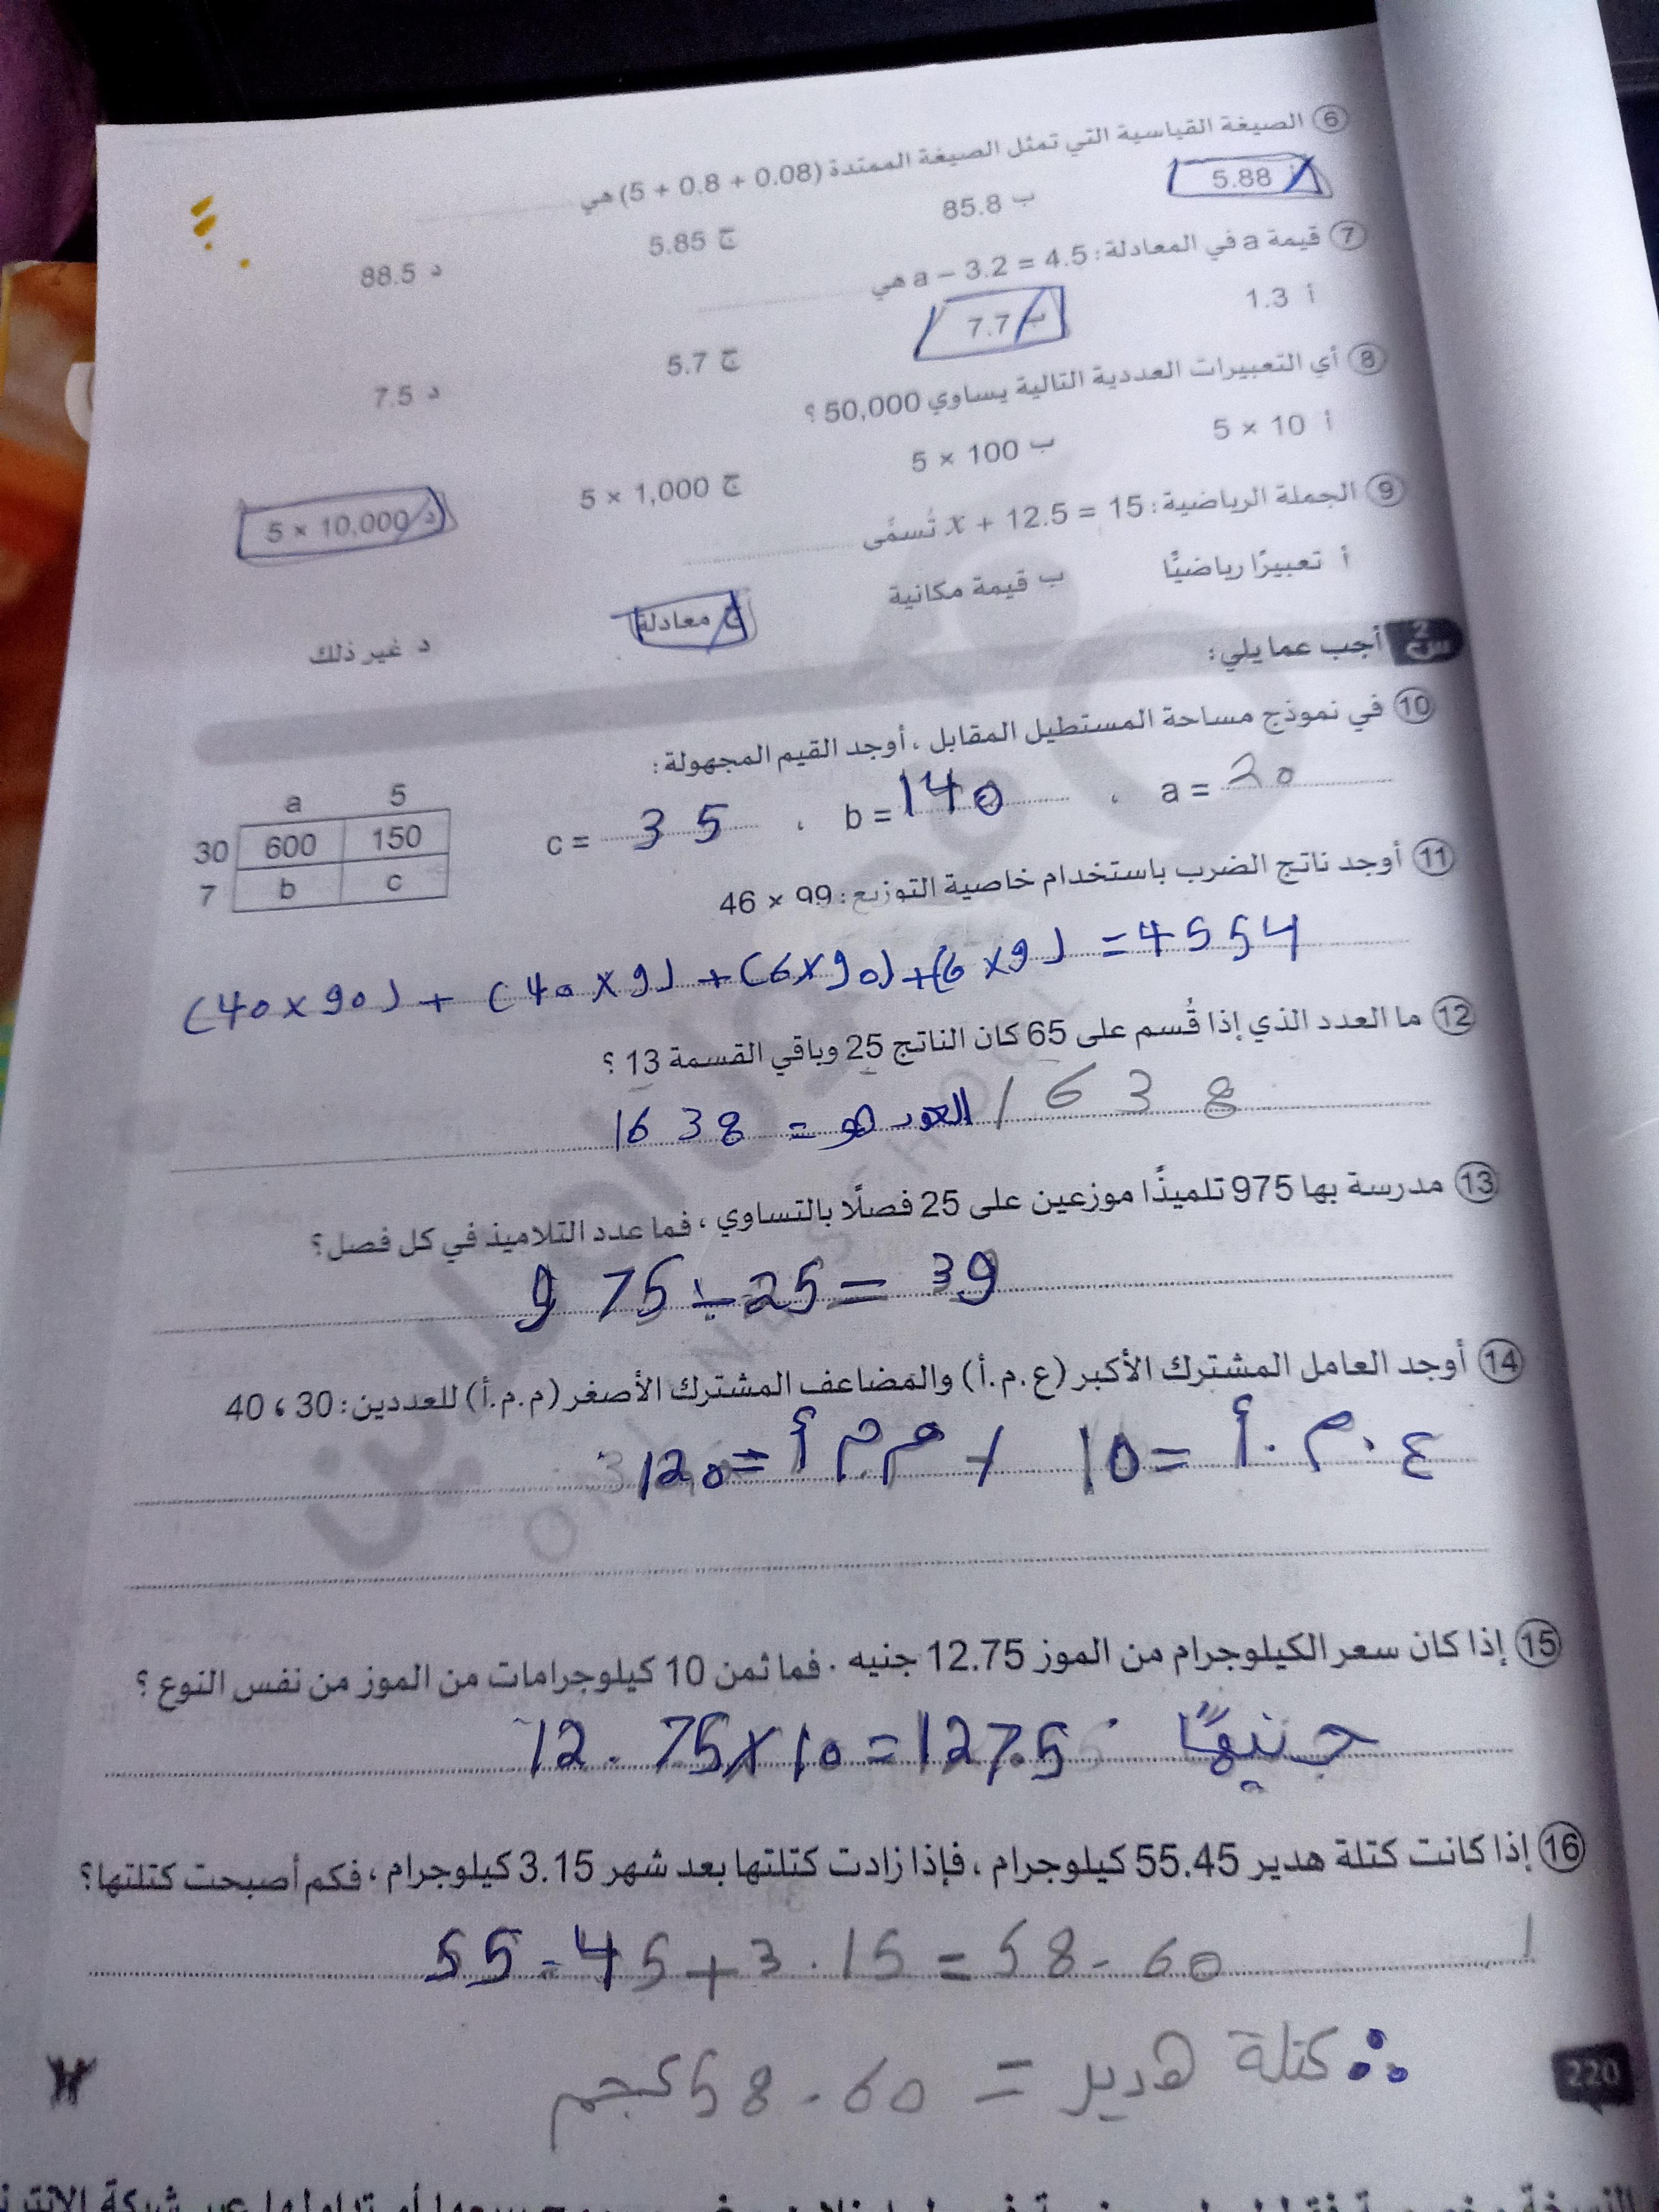 6 الصيغة القياسية التي تمثل الصيغة الممتدة (5 + 0.8 + 0.08) هي
أ 5.88 ب 85.8 ج 5.85 د 88.5
7 قيمة a في المعادلة: a − 3.2 = 4.5 هي
أ 1.3 ب 7.7 ج 5.7 د 7.5
8 أي التعبيرات العددية التالية يساوي 50,000 ؟
أ 5 × 10 ب 5 × 100 ج 5 × 1,000 د 5 × 10,000
9 الجملة الرياضية: x + 12.5 = 15 تُسمَّى
أ تعبيرًا رياضيًّا ب قيمة مكانية ج معادلة د غير ذلك
س2 أجب عما يلي:
10 في نموذج مساحة المستطيل المقابل ، أوجد القيم المجهولة:
a = 20 ، b = 140 ، c = 35
a 5
30 600 150
7 b c
11 أوجد ناتج الضرب باستخدام خاصية التوزيع: 46 × 99
(40 × 90) + (40 × 9) + (6 × 90) + (6 × 9) = 4554
12 ما العدد الذي إذا قُسم على 65 كان الناتج 25 وباقي القسمة 13 ؟
1638 العدد هو = 1638
13 مدرسة بها 975 تلميذًا موزعين على 25 فصلًا بالتساوي ، فما عدد التلاميذ في كل فصل؟
975 ÷ 25 = 39
14 أوجد العامل المشترك الأكبر (ع.م.أ) والمضاعف المشترك الأصغر (م.م.أ) للعددين: 30 ، 40
ع.م.أ = 10 / م م أ = 120
15 إذا كان سعر الكيلوجرام من الموز 12.75 جنيه . فما ثمن 10 كيلوجرامات من الموز من نفس النوع ؟
12.75 × 10 = 127.5 جنيهًا
16 إذا كانت كتلة هدير 55.45 كيلوجرام ، فإذا زادت كتلتها بعد شهر 3.15 كيلوجرام ، فكم أصبحت كتلتها؟
55.45 + 3.15 = 58.60
∴ كتلة هدير = 58.60 كجم
220